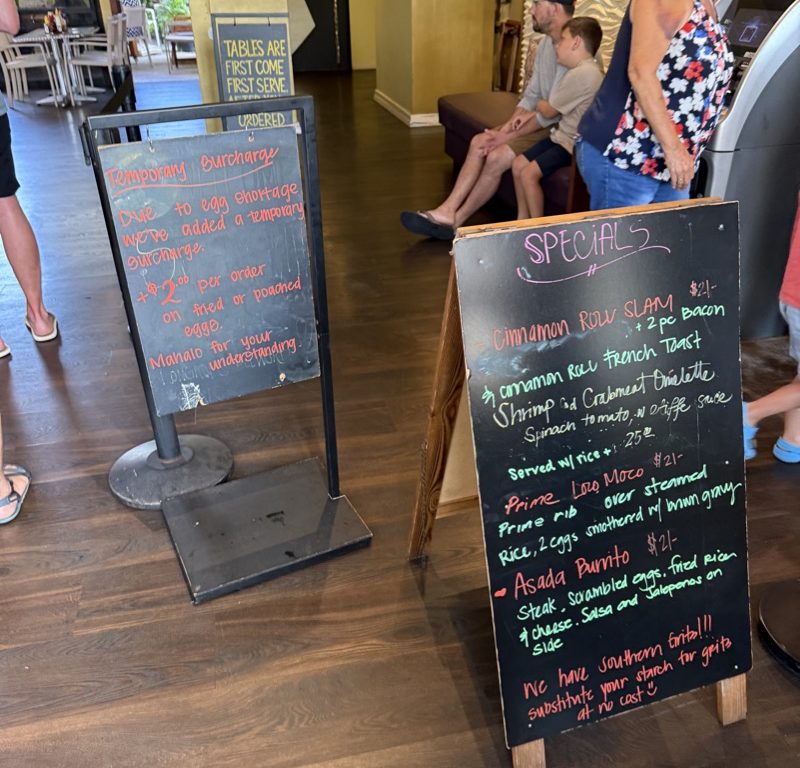 TABLES ARE
FIRST COME
FIRST SERVE
AFTER YOU
ORDERED
Temporary Surcharge
Due to egg shortage
we've added a temporary
surcharge.
+$2.00 per order
on fried or poached
eggs.
Mahalo for your
understanding.
SPECIALS
Cinnamon Roll SLAM $21-
+ 2 pc Bacon
& cinnamon Roll French Toast
Shrimp and Crabmeat Omelette
Spinach tomato, w/ sauce
Served w/ rice + 25
Prime Loco Moco $21-
Prime rib over steamed
Rice, 2 eggs smothered w/ brown gravy
Asada Burrito $21-
Steak, scrambled eggs, fried Rice
& cheese. Salsa and Jalapenos on
side
We have southern Grits!!!
substitute your starch for grits
at no cost